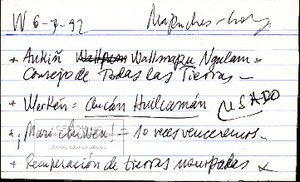 W 6-7-92 Mapuches-
* Aukiñ Wallmapu Ngulam =
Consejo de Todas las Tierras -
* Werken = Aucán Huilcamán
USADO
* ¡Mari chiweu! = 10 veces venceremos.
* Recuperación de tierras usurpadas